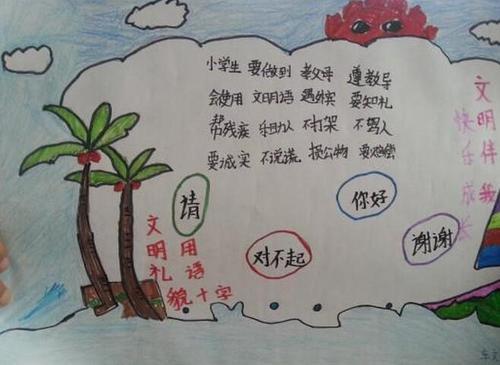 小学生 要做到 敬父母 遵教导
会使用 文明语 遇外宾 要知礼
帮残疾 乐助人 不打架 不骂人
要诚实 不说谎 损公物 要赔偿
文明伴我
快乐成长
请
你好
对不起
谢谢
文明礼貌
用语
十字